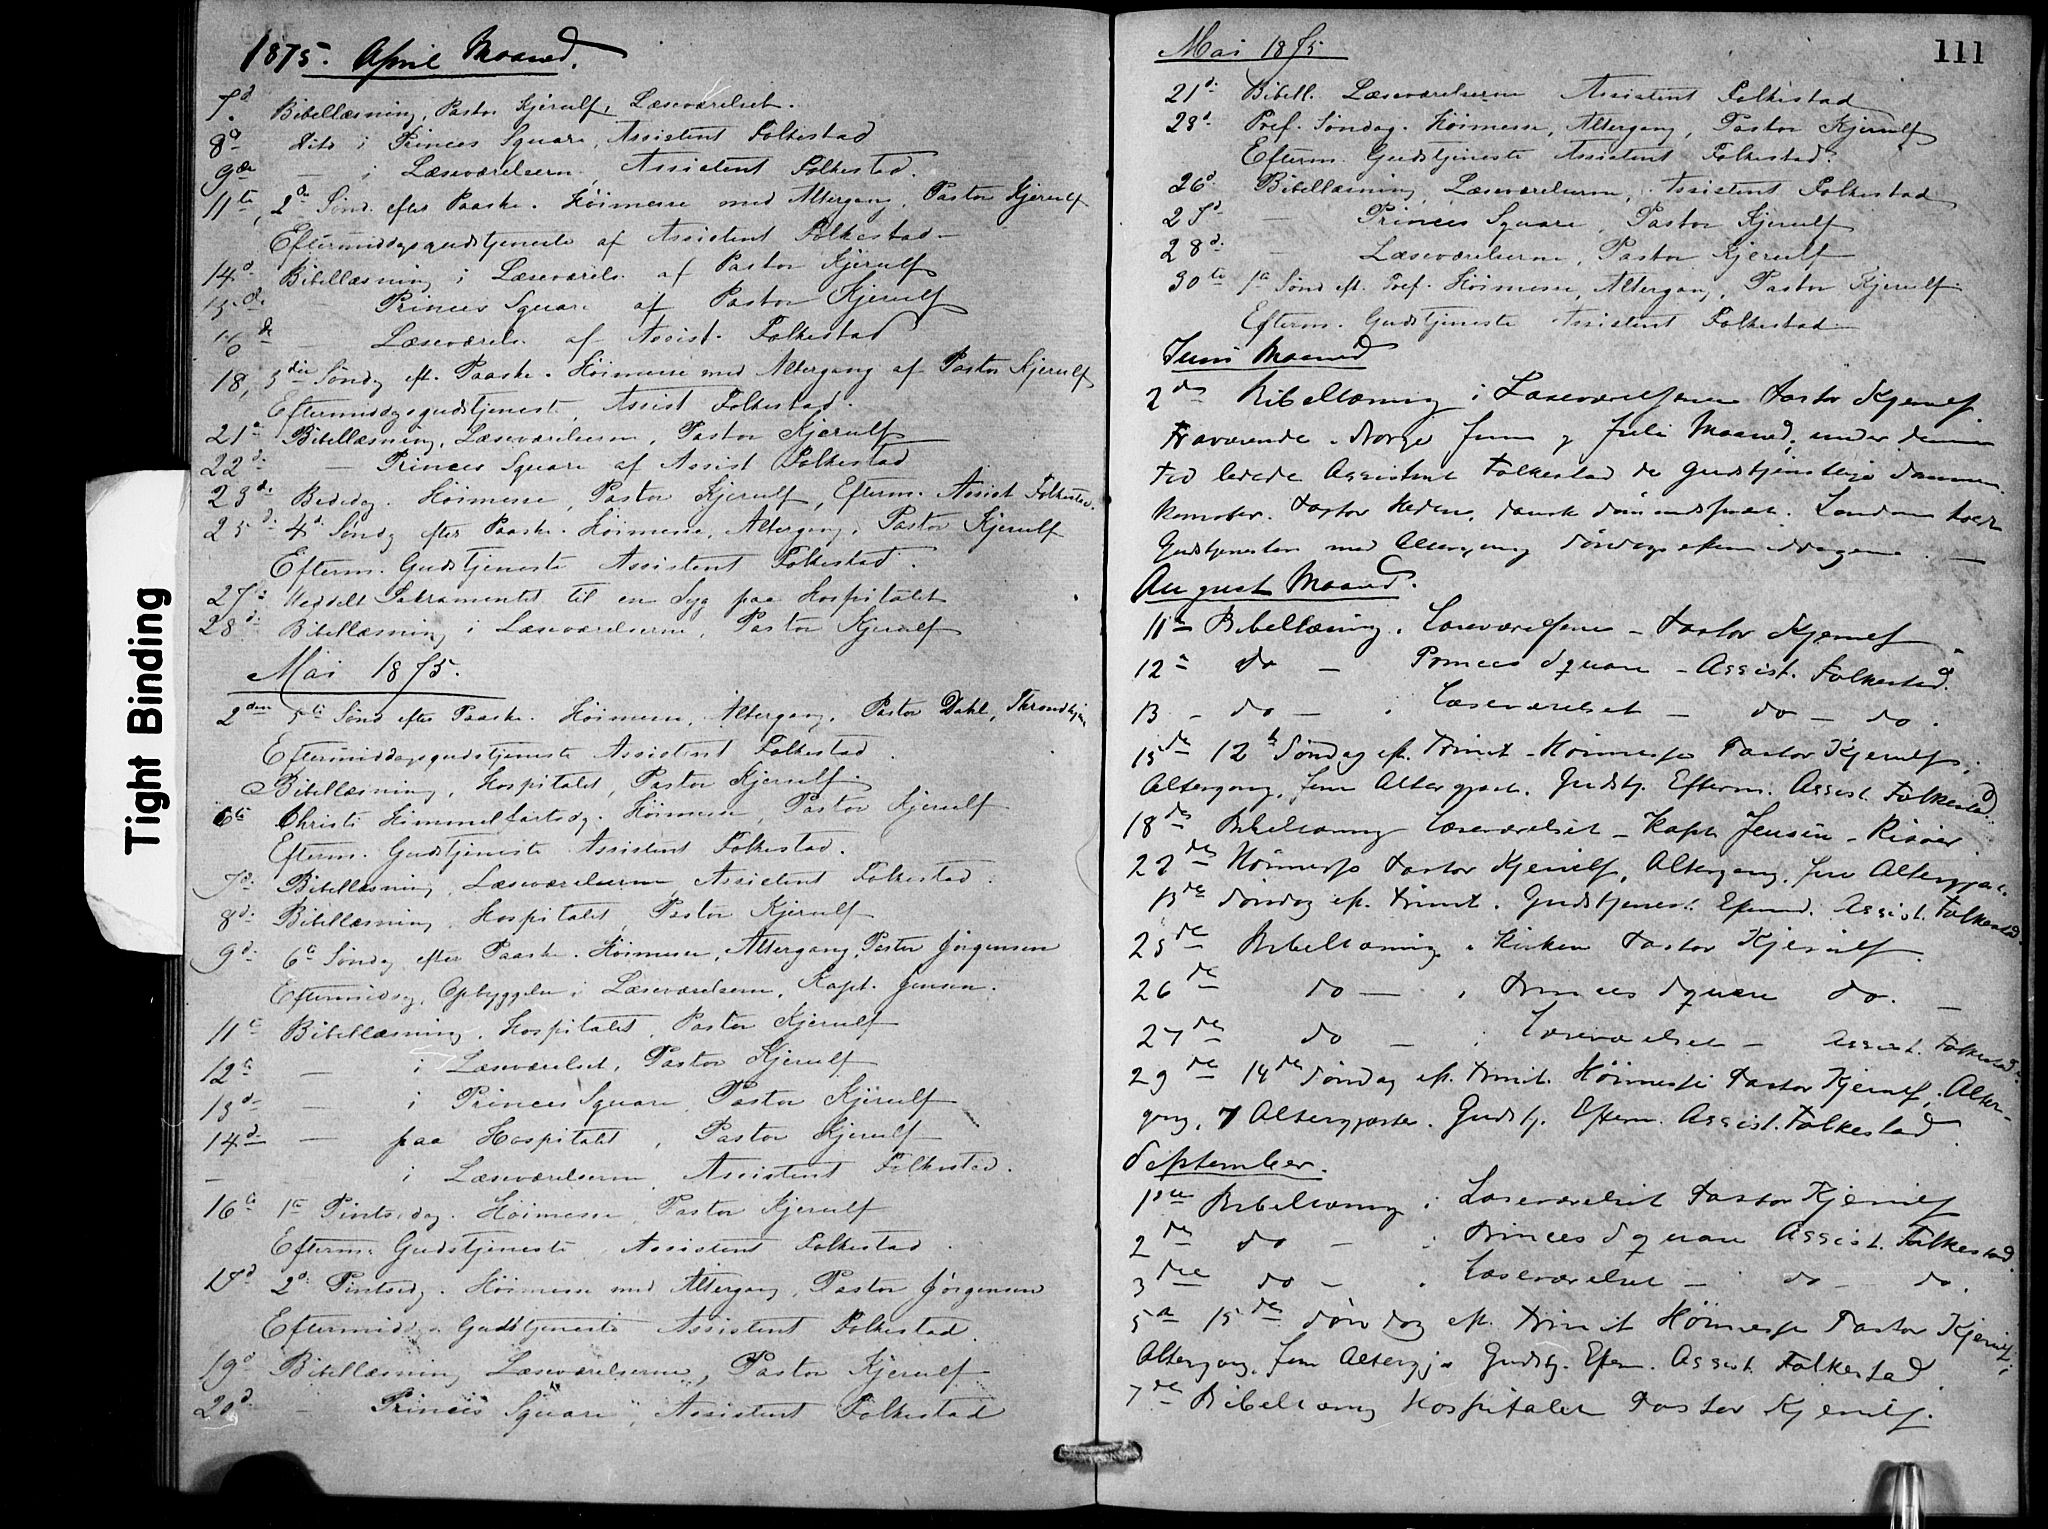 1875. April Maaned.
7d. Bibellæsning, Pastor Kjerulf, Læseværelset.
8d Dito i Princes Square, Assistent Folkestad
9de — i Læseværelserne, Assistent Folkestad.
11te, 2de Sønd. efter Paaske. Høimesse med Altergang, Pastor Kjerulf
Eftermiddagsgudstjeneste af Assistent Folkestad —
14d. Bibellæsning i Læseværels. af Pastor Kjerulf
15de. Princes Square af Pastor Kjerulf
16de — Læseværels. af Assist. Folkestad
18, 3die Søndg eft. Paaske. Høimesse med Altergang af Pastor Kjerulf
Eftermiddagsgudstjenest, Assist Folkestad.
21d Bibellæsning, Læseværelserne, Pastor Kjerulf
22d. — Princes Square af Assist Folkestad
23d. Bededag. Høimesse, Pastor Kjerulf, Efterm. Assist Folkestad.
25d. 4d. Søndg efter Paaske. Høimesse, Altergang, Pastor Kjerulf
Efterm. Gudstjeneste Assistent Folkestad.
27d. Meddelt Sakramentet til en Syg paa Hospitalet
28d. Bibellæsning i Læseværelserne, Pastor Kjerulf
Mai 1875.
2den 5te Sønd efter Paaske. Høimesse, Altergang, Pastor Dahl, Throndhjem
Eftermiddagsgudstjeneste Assistent Folkestad.
Bibellæsning, Hospitalet, Pastor Kjerulf.
6te Christi Himmelfartsdg. Høimesse, Pastor Kjerulf
Efterm. Gudstjeneste Assistent Folkestad.
7d. Bibellæsning, Læseværelserne, Assistent Folkestad.
8d. Bibellæsning, Hospitalet, Pastor Kjerulf
9d. 6te Søndag efter Paaske. Høimesse, Altergang, Pastor Jørgensen
Eftermiddag, Opbyggelse i Læseværelserne, Kapt. Jensen.
11te Bibellæsning, Hospitalet, Pastor Kjerulf
12te — i Læseværelset, Pastor Kjerulf
13d. — i Princes Square, Pastor Kjerulf
14d. — paa Hospitalet, Pastor Kjerulf
— — i Læseværelserne, Assistent Folkestad.
16te 1te Pintsedag. Høimesse, Pastor Kjerulf
Efterm. Gudstjeneste, Assistent Folkestad.
17d 2d. Pintsedg. Høimesse med Altergang, Pastor Jørgensen
Eftermiddgs Gudstjeneste Assistent Folkestad.
19d Bibellæsning Læseværelserne, Pastor Kjerulf
20d. — Princes Square, Assistent Folkestad
Mai 1875
111
21d. Bibell. Læseværelserne Assistent Folkestad
23d. Tref. Søndag. Høimesse, Altergang, Pastor Kjerulf
Efterm. Gudstjeneste Assistent Folkestad.
26d. Bibellæsning, Læseværelserne, Assistent Folkestad
27d. — Princes Square, Pastor Kjerulf
28d. — Læseværelserne, Pastor Kjerulf
30te 1te Sønd eft. Tref. Høimesse, Altergang, Pastor Kjerulf
Efterm. Gudstjeneste Assistent Folkestad —
Juni Maaned
2den Bibellæsning i Læseværelserne Pastor Kjerulf.
Fraværende i Norge Juni og Juli Maaned, under denne
Tid ledede Assistent Folkestad de Gudstjenstlige Sammen-
komster. Pastor Heden, dansk Sømandspræst i London holdt
Gudstjenester med Altergang Søndags eftermiddagene. —
August Maaned.
11te Bibellæsning i Læseværelserne — Pastor Kjerulf
12te do — Princes Square — Assist. Folkestad.
13 — do — i Læseværelset — do — do.
15de 12te Søndag eft. Trinit. Høimesse Pastor Kjerulf,
Altergang, fem Altergjæst. Gudstj. Efterm. Assist. Folkestad
18de Bibellæsning Læseværelset — Kapt. Jensen — Risøer
22de Høimesse Pastor Kjerulf, Altergang, fire Altergjæst.
13de Søndag eft. Trinit. Gudstjenest. Eftermd. Assist. Folkestad.
25de Bibellæsning i Kirken Pastor Kjerulf.
26de do — i Princes Square do. —
27de do — i Læseværelset — Assist. Folkestad.
29de 14de Søndag eft. Trinit. Høimesse Pastor Kjerulf, Alter-
gang, 7 Altergjæster. Gudstj. Efterm. Assist. Folkestad.
September.
1ste Bibellæsning i Læseværelset Pastor Kjerulf
2de do — i Princes Square Assist. Folkestad.
3die do — i Læseværelset — do — do.
5te 15de Søndag eft. Trinit Høimesse Pastor Kjerulf,
Altergang, fem Altergj. Gudstj. Efterm. Assist. Folkestad.
7de Bibellæsning Hospitalet Pastor Kjerulf.
Tight Binding